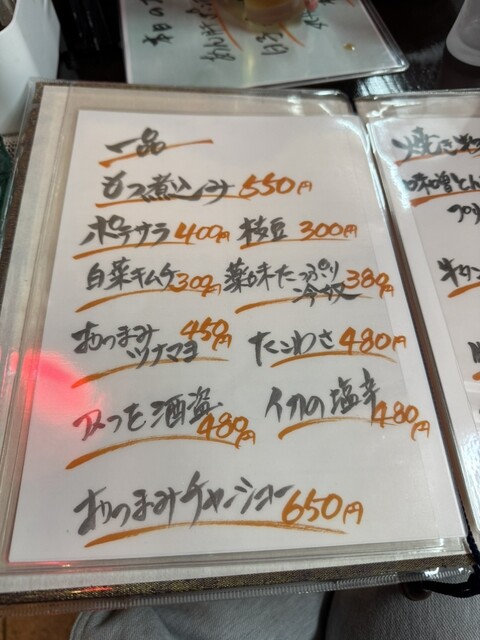 本日の
一品
もつ煮込み 550円
ポテサラ 400円 枝豆 300円
白菜キムチ 300円 薬味たっぷり冷奴 380円
おつまみ 450円
ツナマヨ
たこわさ 480円
酒盗 480円
イカの塩辛 480円
おつまみチャーシュー 650円
焼き
味噌とん
牛タン